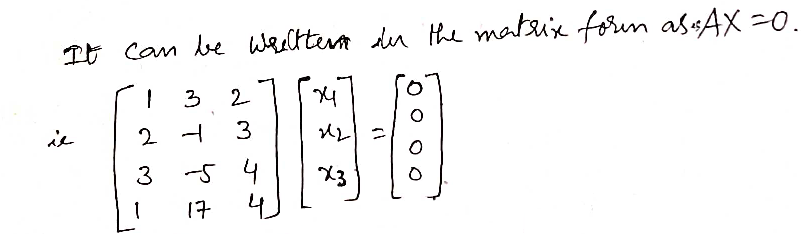 It can be written in the matrix form as AX = 0.
ie [1 3 2; 2 -1 3; 3 -5 4; 1 17 4] [x1; x2; x3] = [0; 0; 0; 0]